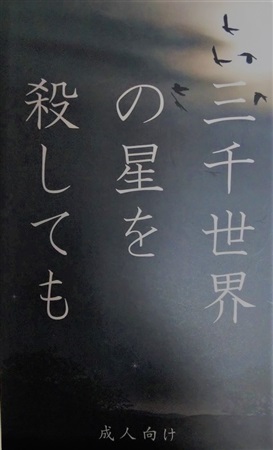 三千世界
の星を
殺しても
成人向け